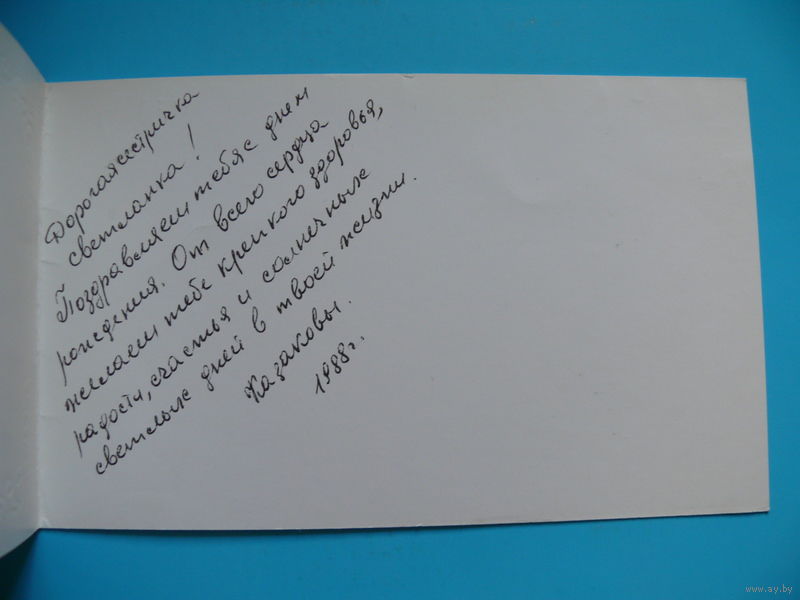 Дорогая сестричка
светланка!
Поздравляем тебя с днем
рождения. От всего сердца
желаем тебе крепкого здоровья,
радости, счастья и солнечных
светлых дней в твоей жизни.
Казаковы.
1988г.
www.ay.by